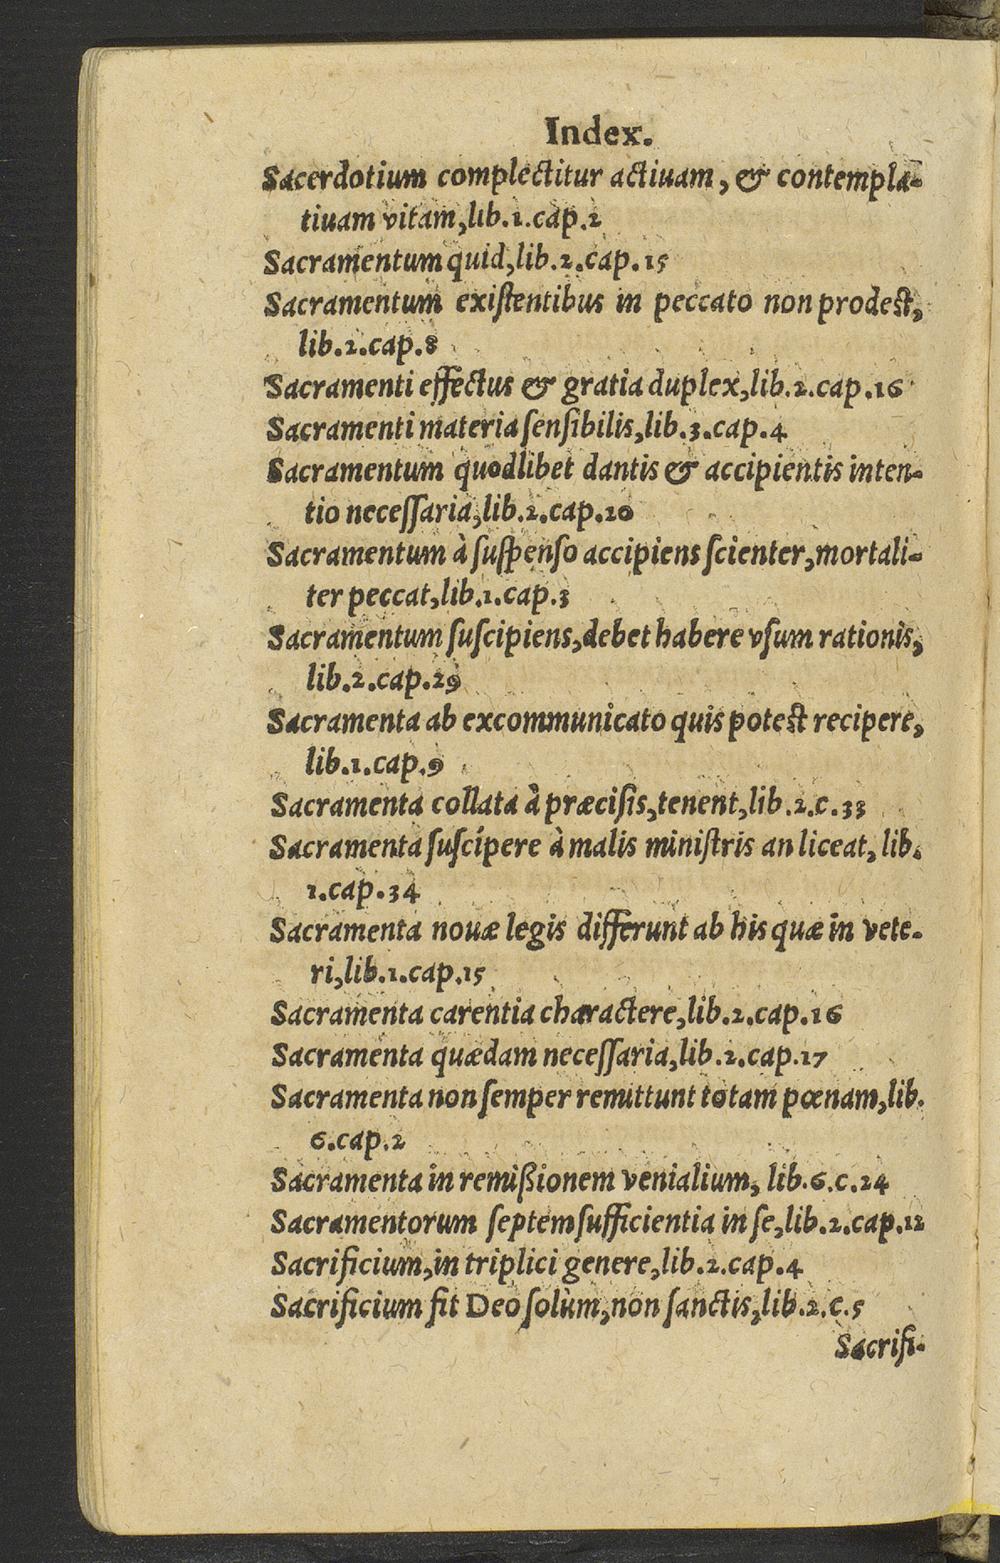 Index.
Sacerdotium complectitur actiuam, & contempla-
tiuam vitam, lib.1.cap.2
Sacramentum quid, lib.2.cap.15
Sacramentum exiſtentibus in peccato non prodeſt,
lib.2.cap.8
Sacramenti effectus & gratia duplex, lib.2.cap.16
Sacramenti materia ſenſibilis, lib.3.cap.4
Sacramentum quodlibet dantis & accipientis inten-
tio neceſſaria, lib.2.cap.20
Sacramentum à ſuſpenſo accipiens ſcienter, mortali-
ter peccat, lib.1.cap.3
Sacramentum ſuſcipiens, debet habere vſum rationis,
lib.2.cap.29
Sacramenta ab excommunicato quis poteſt recipere,
lib.1.cap.9
Sacramenta collata à præciſis, tenent, lib.2.c.33
Sacramenta ſuſcipere à malis miniſtris an liceat, lib.
1.cap.34
Sacramenta nouæ legis differunt ab his quæ in vete-
ri, lib.1.cap.15
Sacramenta carentia charactere, lib.2.cap.16
Sacramenta quædam neceſſaria, lib.2.cap.17
Sacramenta non ſemper remittunt totam pœnam, lib.
6.cap.2
Sacramenta in remißionem venialium, lib.6.c.24
Sacramentorum ſeptem ſufficientia in ſe, lib.2.cap.12
Sacrificium, in triplici genere, lib.2.cap.4
Sacrificium fit Deo ſolùm, non ſanctis, lib.2.c.5
Sacrifi-